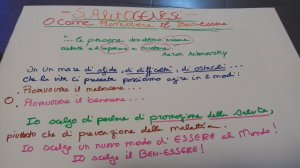 - SALUTOGENESI
O Come Promuovere il Ben-Essere
"... le persone dovrebbero essere
aiutate ad imparare a nuotare"
Aaron Antonovsky
In un mare di sfide, di difficoltà, di ostacoli...
che la vita ci presenta possiamo agire in 2 modi:
. Promuovere il malessere...
O. Promuovere il benessere...
Io scelgo di parlare di promozione della Salute,
piuttosto che di prevenzione della malattia.
Io scelgo un nuovo modo di ESSERE al Mondo!
Io scelgo il BEN-ESSERE!